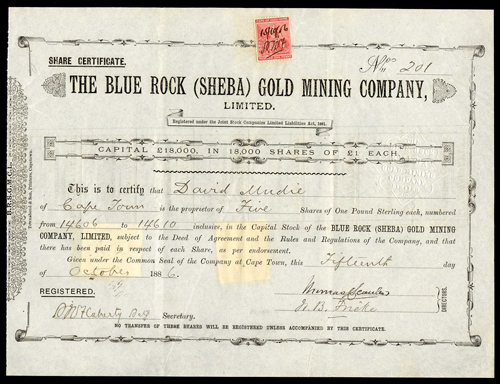 15/10/86
SHARE CERTIFICATE.
No. 201
THE BLUE ROCK (SHEBA) GOLD MINING COMPANY,
LIMITED.
Registered under the Joint Stock Companies Limited Liabilities Act, 1861.
CAPITAL £18,000, IN 18,000 SHARES OF £1 EACH.
This is to certify that David Mudie
of Cape Town is the proprietor of Five Shares of One Pound Sterling each, numbered
from 14606 to 14610 inclusive, in the Capital Stock of the BLUE ROCK (SHEBA) GOLD MINING
COMPANY, LIMITED, subject to the Deed of Agreement and the Rules and Regulations of the Company, and that
there has been paid in respect of each Share, as per endorsement.
Given under the Common Seal of the Company at Cape Town, this Fifteenth day
of October 1886.
REGISTERED.
DIRECTORS.
Secretary.
NO TRANSFER OF THESE SHARES WILL BE REGISTERED UNLESS ACCOMPANIED BY THIS CERTIFICATE.